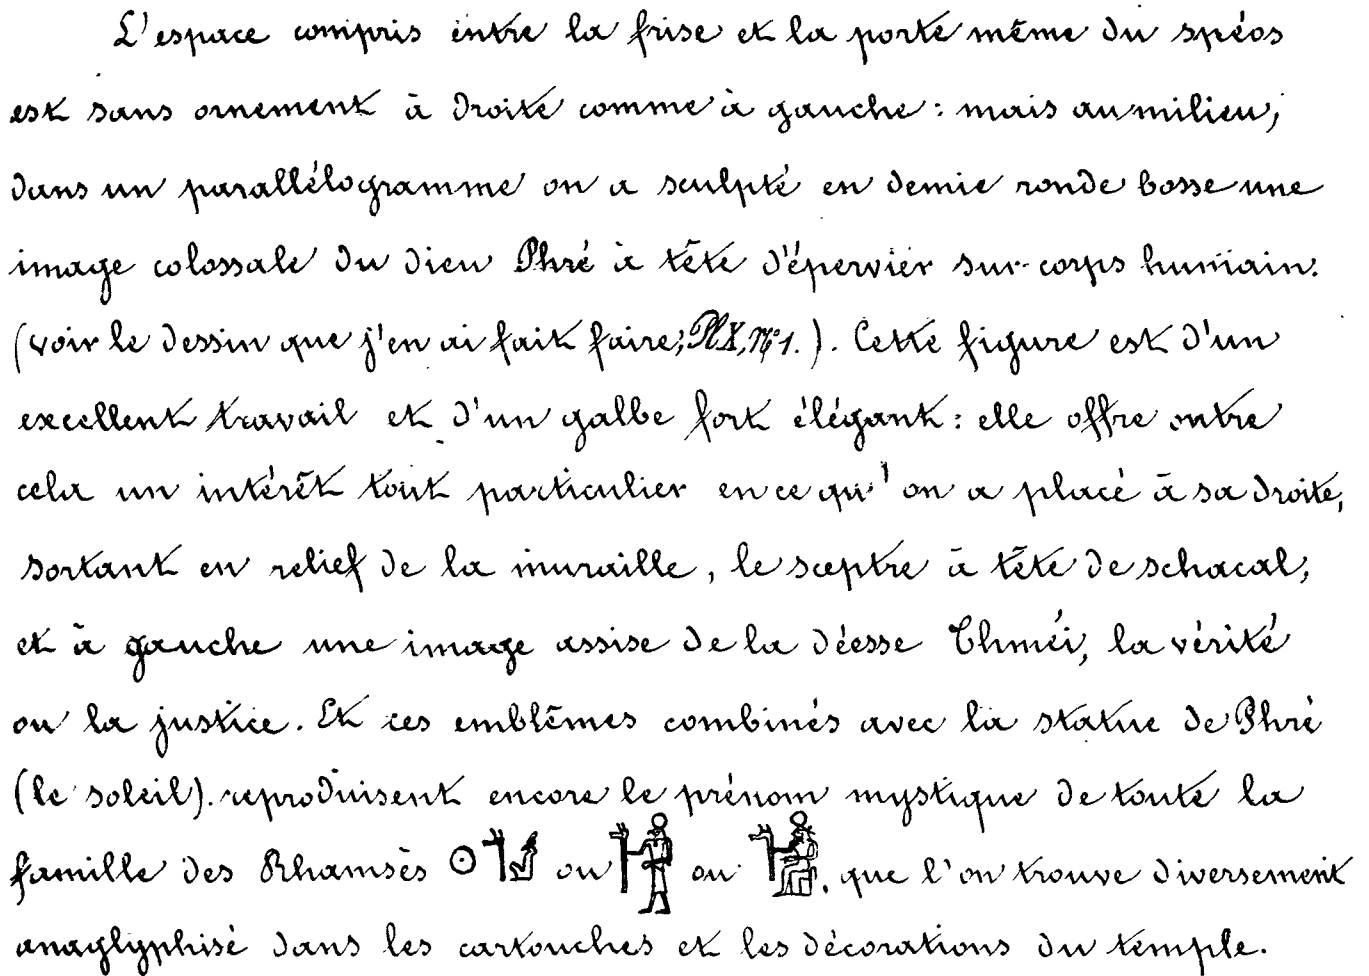 L'espace compris entre la frise et la porte même du spéos
est sans ornement à droite comme à gauche : mais au milieu,
dans un parallélogramme on a sculpté en demie ronde bosse une
image colossale du dieu Phré à tête d'épervier sur corps humain.
(voir le dessin que j'en ai fait faire, Pl. X, N° 1.). Cette figure est d'un
excellent travail et d'un galbe fort élégant : elle offre outre
cela un intérêt tout particulier en ce qu'on a placé à sa droite,
sortant en relief de la muraille, le sceptre à tête de schacal,
et à gauche une image assise de la déesse Thméi, la vérité
ou la justice. Et ces emblêmes combinés avec la statue de Phré
(le soleil). reproduisent encore le prénom mystique de toute la
famille des Rhamsès ou ou , que l'on trouve diversement
anaglyphisé dans les cartouches et les décorations du temple.